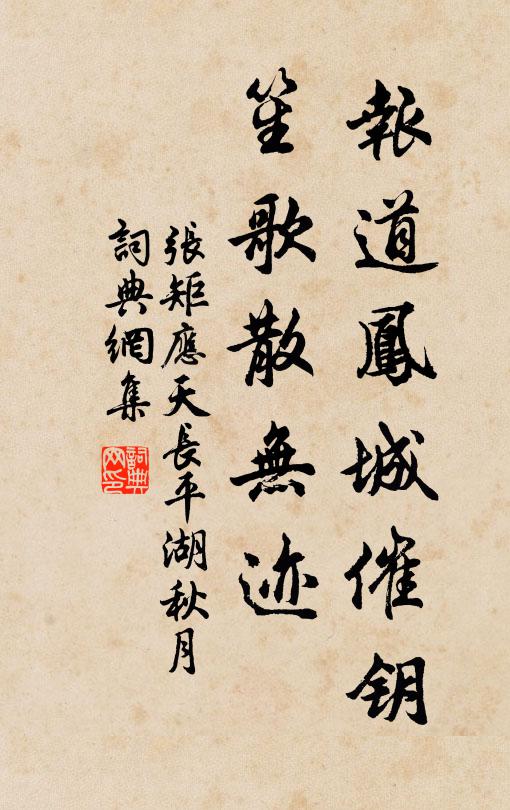 報道鳳城催钥
笙歌散無迹
張矩應天長平湖秋月
詞典網集
詞典
网印